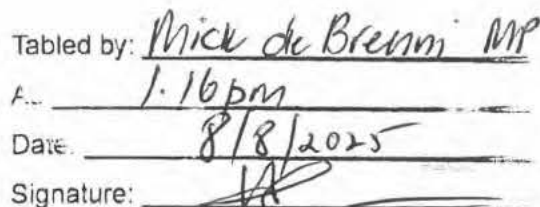 Tabled by: Mick de Brenni MP
A... 1.16pm
Date: 8/8/2025
Signature: